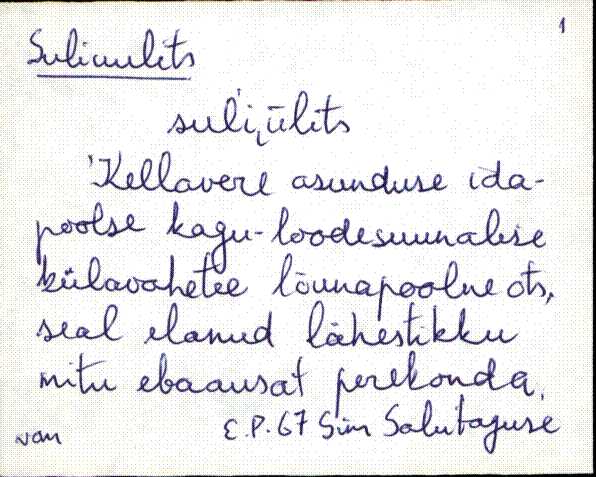 1
Suliuulits
suĺi,ülits
'Kellavere asunduse ida-
poolse kagu-loodesuunalise
külavahetee lõunapoolne ots,
seal elanud lähestikku
mitu ebaausat perekonda.
van E.P.67 Sim Salutaguse